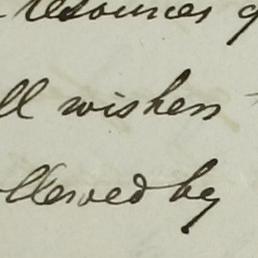 resources
ll wishers
llowed by